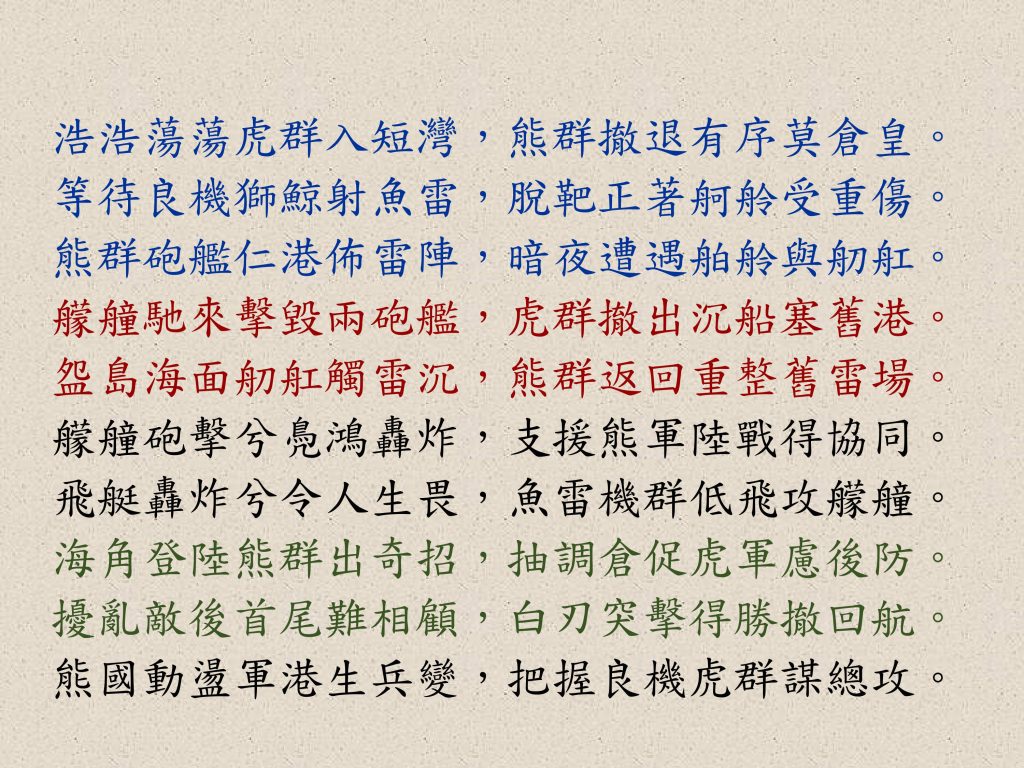 浩浩蕩蕩虎群入短灣，熊群撤退有序莫倉皇。
等待良機獅鯨射魚雷，脫靶正著舸舲受重傷。
熊群砲艦仁港佈雷陣，暗夜遭遇舶舲與舠舡。
艨艟馳來擊毀兩砲艦，虎群撤出沉船塞舊港。
盌島海面舠舡觸雷沉，熊群返回重整舊雷場。
艨艟砲擊兮鳧鴻轟炸，支援熊軍陸戰得協同。
飛艇轟炸兮令人生畏，魚雷機群低飛攻艨艟。
海角登陸熊群出奇招，抽調倉促虎軍慮後防。
擾亂敵後首尾難相顧，白刃突擊得勝撤回航。
熊國動盪軍港生兵變，把握良機虎群謀總攻。